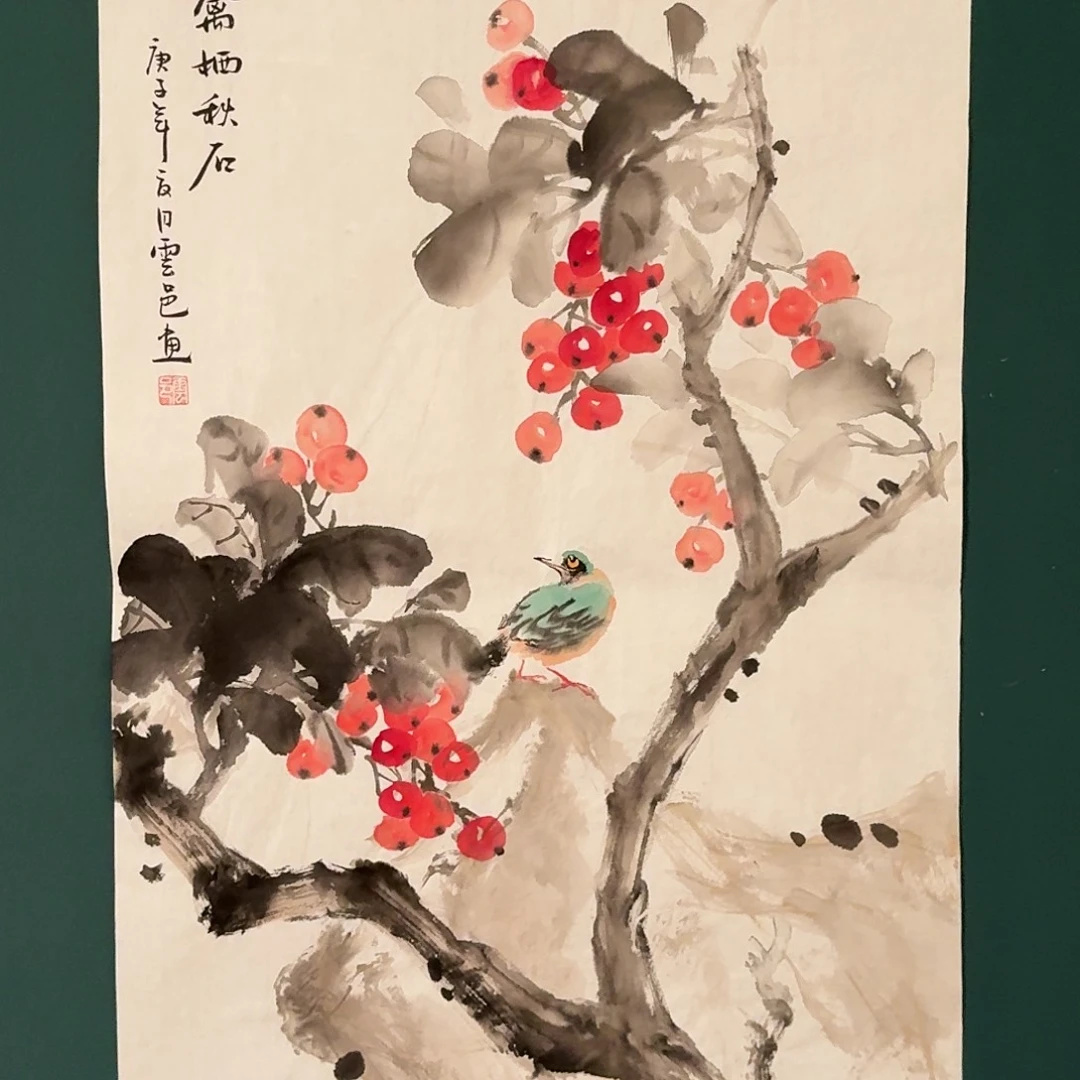 栖秋石
庚子年夏日雲邑画
雲邑